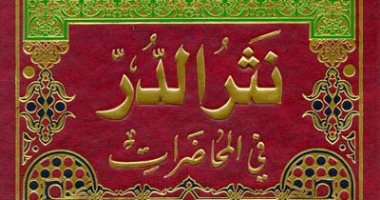 نَثْرُ الدُّرِّ
فِي المُحَاضَرَاتِ